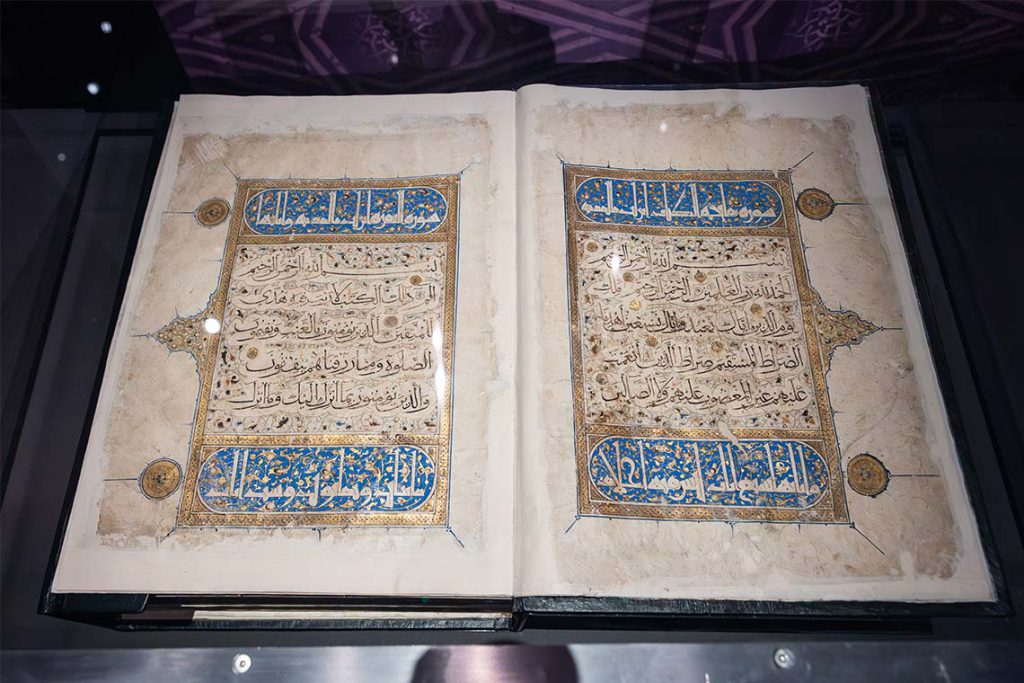 سورة فاتحة الكتاب
بسم الله الرحمن الرحيم
الحمد لله رب العالمين الرحمن الرحيم ملك
يوم الدين اياك نعبد واياك نستعين اهدنا
الصراط المستقيم صراط الذين انعمت
عليهم غير المغضوب عليهم ولا الضالين
سورة البقرة
بسم الله الرحمن الرحيم
الم ذلك الكتب لا ريب فيه هدى
للمتقين الذين يؤمنون بالغيب ويقيمون
الصلوة ومما رزقناهم ينفقون
والذين يؤمنون بما انزل اليك وما انزل